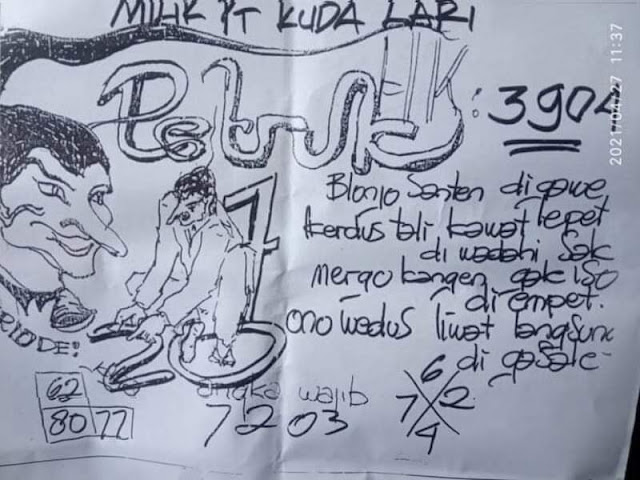 MILIK PT KUDA LARI
HK : 3904
Blonjo Santen di gawe lepet
Kerdus tali kawat
di wadahi sak
mergo kangen gak iso
di empet.
ono wedus liwat langsung
di gasake-
RIODE!
1
20
62
80 72
angka wajib
7203
6
7 2
4
2021/04/27 11:37